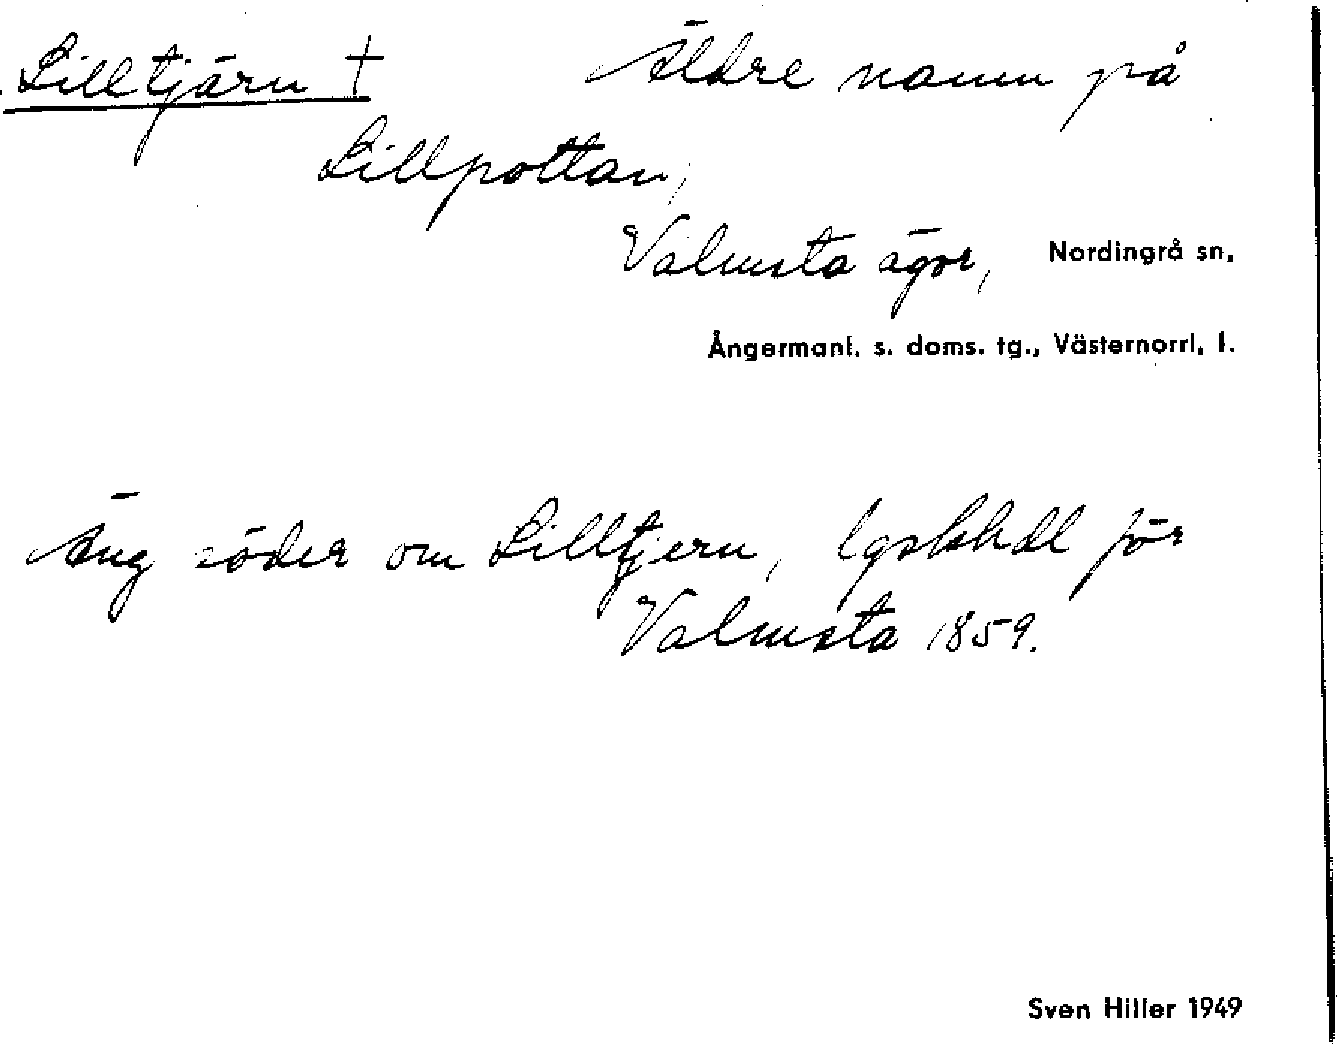 Lilltjärn † Äldre namn på
Lillpottan,
Valmsta ägor, Nordingrå sn,
Ångermanl. s. doms. tg., Västernorrl. l.
Äng söder om Lilltjern, lgskhdl för
Valmsta 1859.
Sven Hiller 1949